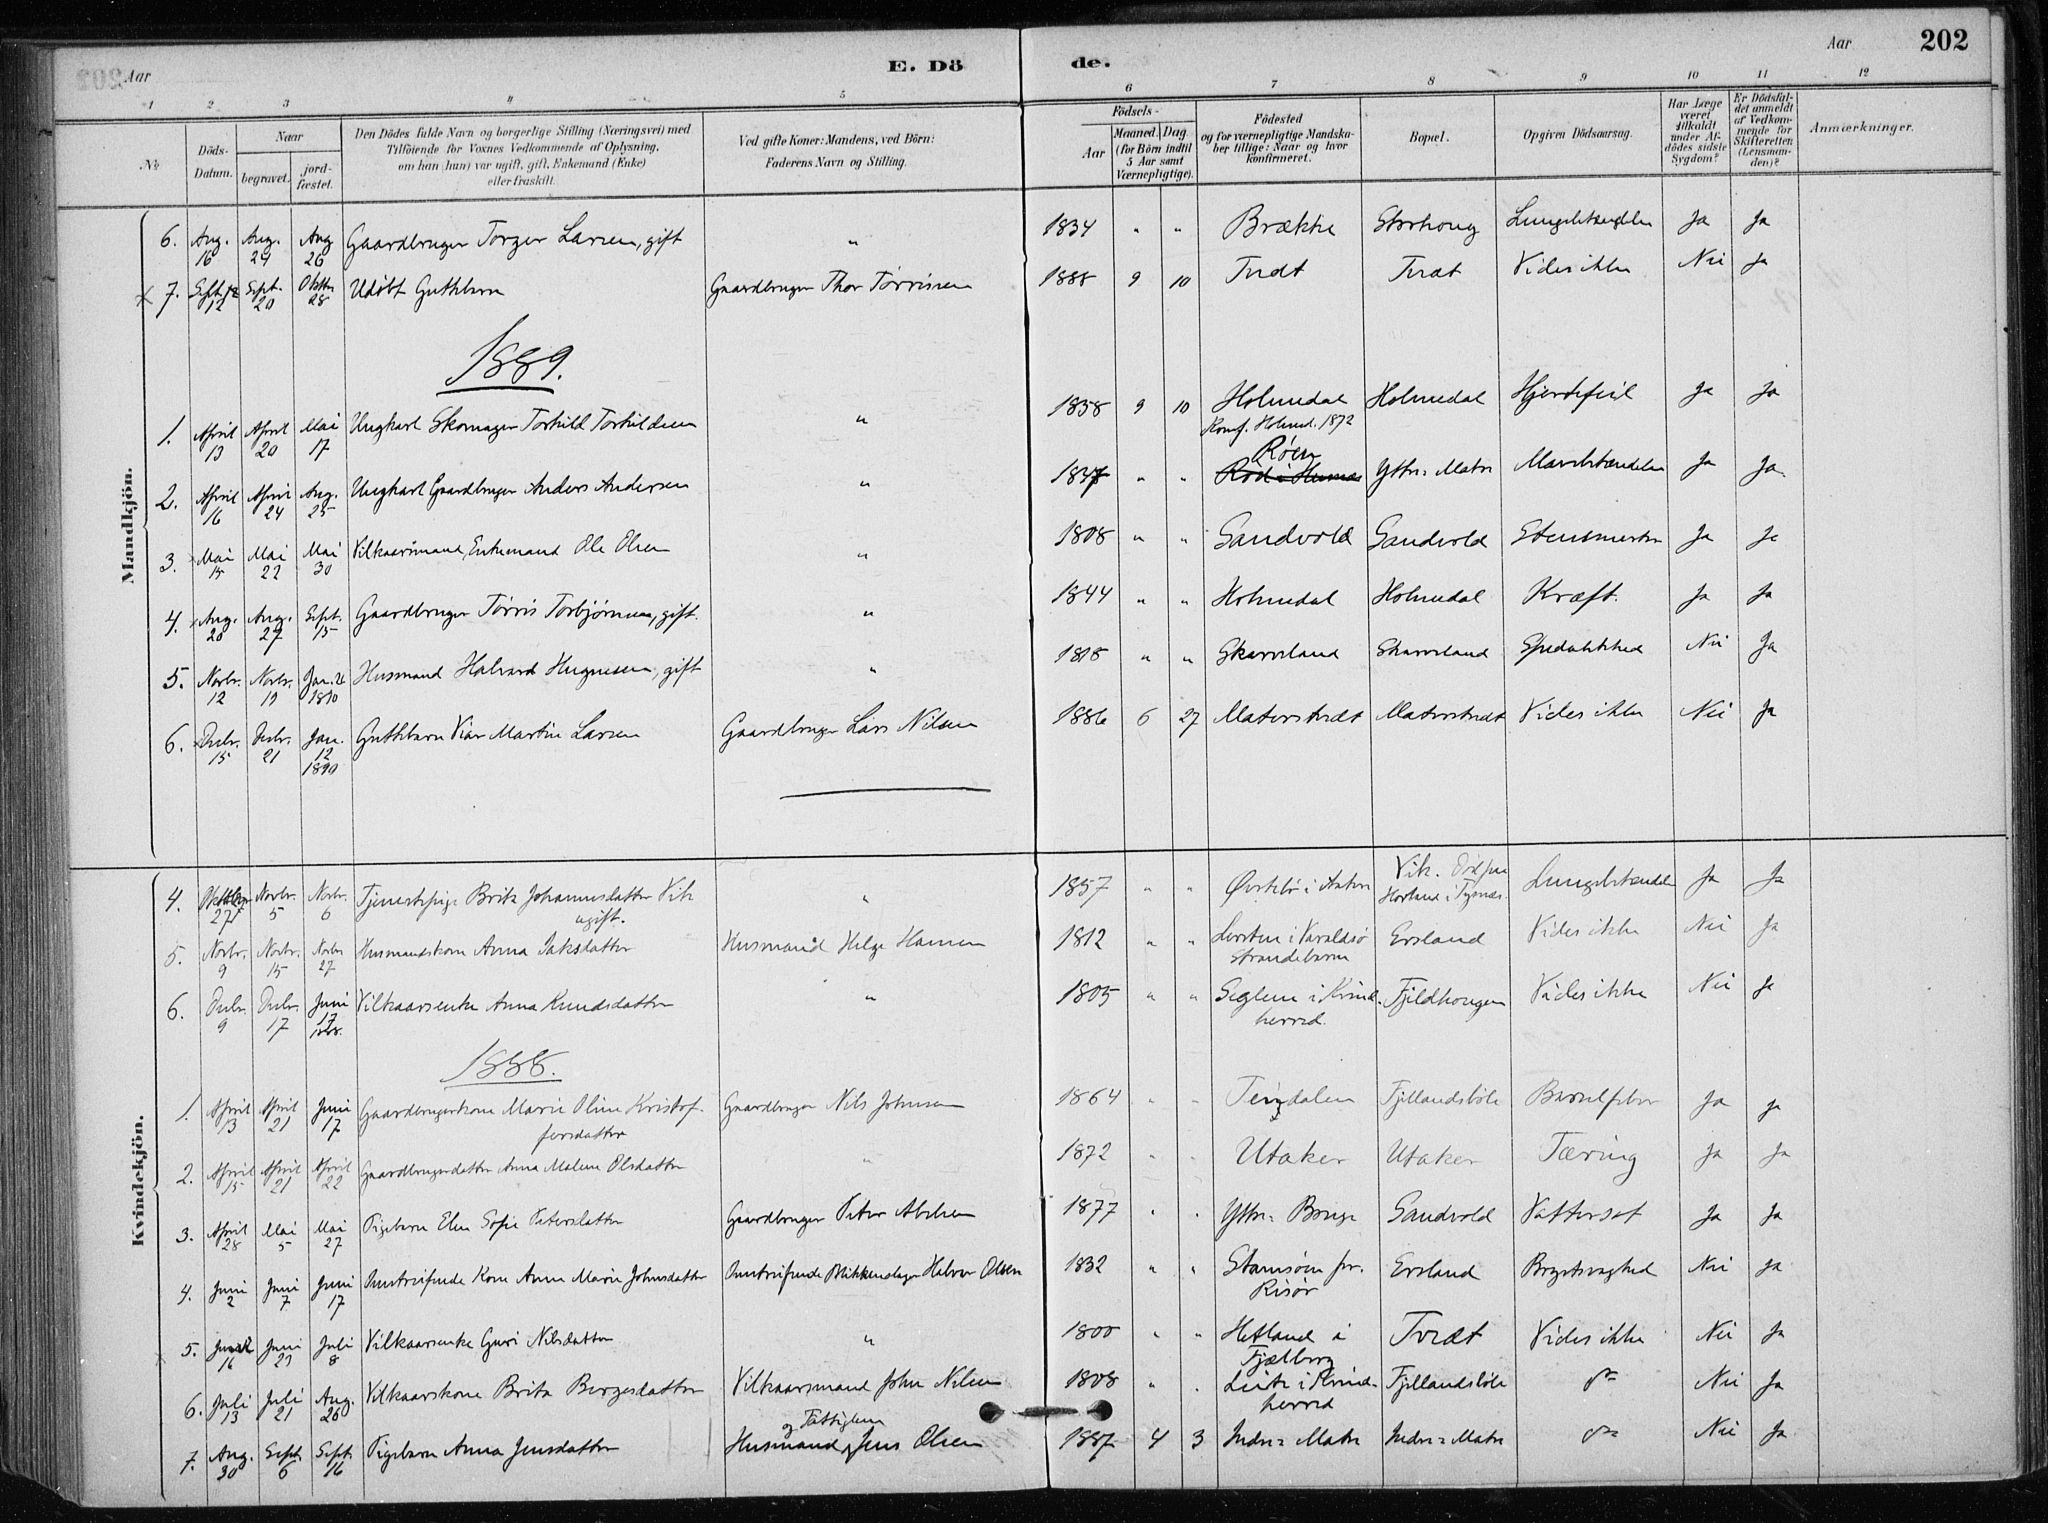 Aar
E. Dö
de.
Aar
202
1 2 3 4 5 6 7 8 9 10 11 12
№
Döds-Datum.
Naar
begravet.
jord-fæstet.
Den Dödes fulde Navn og borgerlige Stilling (Næringsvei) med
Tilföiende for Voxnes Vedkommende af Oplysning,
om han (hun) var ugift, gift, Enkemand (Enke)
eller fraskilt.
Ved gifte Koner: Mandens, ved Börn:
Faderens Navn og Stilling.
Födsels-
Aar
Maaned. Dag.
(for Börn indtil
5 Aar samt
Værnepligtige).
Födested
og for værnepligtige Mandskaber tillige: Naar og hvor
konfirmeret.
Bopæl.
Opgiven Dödsaarsag.
Har Læge
været
tilkaldt
under Afdödes sidste
Sygdom?
Er Dödsfaldet anmeldt
af Vedkommende for
Skifteretten
(Lensmanden)?
Anmærkninger.
Mandkjön.
6. Aug. 16 Aug. 24 Aug 26 Gaardbruger Torger Larsen, gift " 1834 " " Brække Storhoug Lungebetændelse Ja Ja
7. Sept. 12 Sept. 20 Oktbr. 28 Udøbt Guttebarn Gaardbruger Thor Tørrisen 1888 9 10 Tvedt Tvedt Vides ikke Nei Ja
1889.
1. April 13 April 20 Mai 17 Ungkarl Skomager Torkild Torkildsen " 1858 9 10 Holmedal Konf. Holmed. 1872 Holmedal Hjertefeil Ja Ja
2. April 16 April 24 Aug. 25 Ungkarl Gaardbruger Anders Andersen " 1847 " " Røen Ytre-Matre Mavebetændelse Ja Ja
3. Mai 15 Mai 22 Mai 30 Vilkaarsmand, Enkemand Ole Olsen " 1808 " " Sandvold Sandvold Stensmerter Ja Ja
4. Aug. 20 Aug. 27 Sept. 15 Gaardbruger Tørris Torbjørnsen, gift. " 1844 " " Holmedal Holmedal Kræft. Ja Ja
5. Novbr. 12 Novbr. 19 Jan. 26 1890 Husmand Halvard Hugnesen, gift " 1818 " " Skarveland Skarveland Spedalskhed Nei Ja
6. Decbr. 15 Decbr. 21 Jan. 12 1890 Guttebarn Martin Larsen Gaardbruger Lars Nilsen 1886 6 27 Matrestvedt Matrestvedt Vides ikke Nei Ja
Kvindekjön.
4. Oktober 27 Novbr. 5 Novbr. 6 Tjenestepige Brita Johannesdatter Vik ugift. " 1857 " " Øvrebø i Vik. Død paa Hovland i Tysnes. Lungebetændelse Ja Ja
5. Novbr. 9 Novbr. 15 Novbr 27 Husmandskone Anna Jaksdatter Husmand Helge Hansen 1812 " " i Varaldsø Strandebarm Ersland Vides ikke Nei Ja
6. Decbr. 9 Decbr. 17 Juni 17 1888. Vilkaarsenke Anna Knudsdatter " 1805 " " Seglem i Kvindherred. Fjeldhougen Vides ikke Nei Ja
1888.
1. April 13 April 21 Juni 17 Gaardbrugerkone Marie Oline Kristoffersdatter Gaardbruger Nils Johnsen 1864 " " Teigdalen Fjellandsbøle Barselfeber Ja Ja
2. April 15 April 21 April 22 Gaardbrugerdatter Anna Malene Olsdatter " 1872 " " Utaker Utaker Tæring Ja Ja
3. April 28 Mai 5 Mai 27 Pigebarn Elen Sofie Petersdatter Gaardbruger Peter Abelsen 1877 " " Ytre- Sandvold Vattersot Ja Ja
4. Juni 2 Juni 7 Juni 17 Omstreifende Kone Anne Marie Johnsdatter Omstreifende Blikkenslager Halvor Olsen 1832 " " Risør Ersland Brystsvaghed Nei Ja
5. Juni 16 Juni 23 Juli 8 Vilkaarsenke Guri Nilsdatter " 1800 " " Hetland i Fjelberg Tvedt Vides ikke Nei Ja
6. Juli 13 Juli 21 Aug. 26 Vilkaarskone Brita Borgesdatter Vilkaarsmand John Nilsen 1808 " " i Kvindherred Fjellandsbøle Nei Ja
7. Aug. 30 Sept. 6 Sept. 16 Pigebarn Anna Jensdatter Husmand og Fattiglem Jens Olsen 1887 4 3 Indre-Matre Indre-Matre Nei Ja